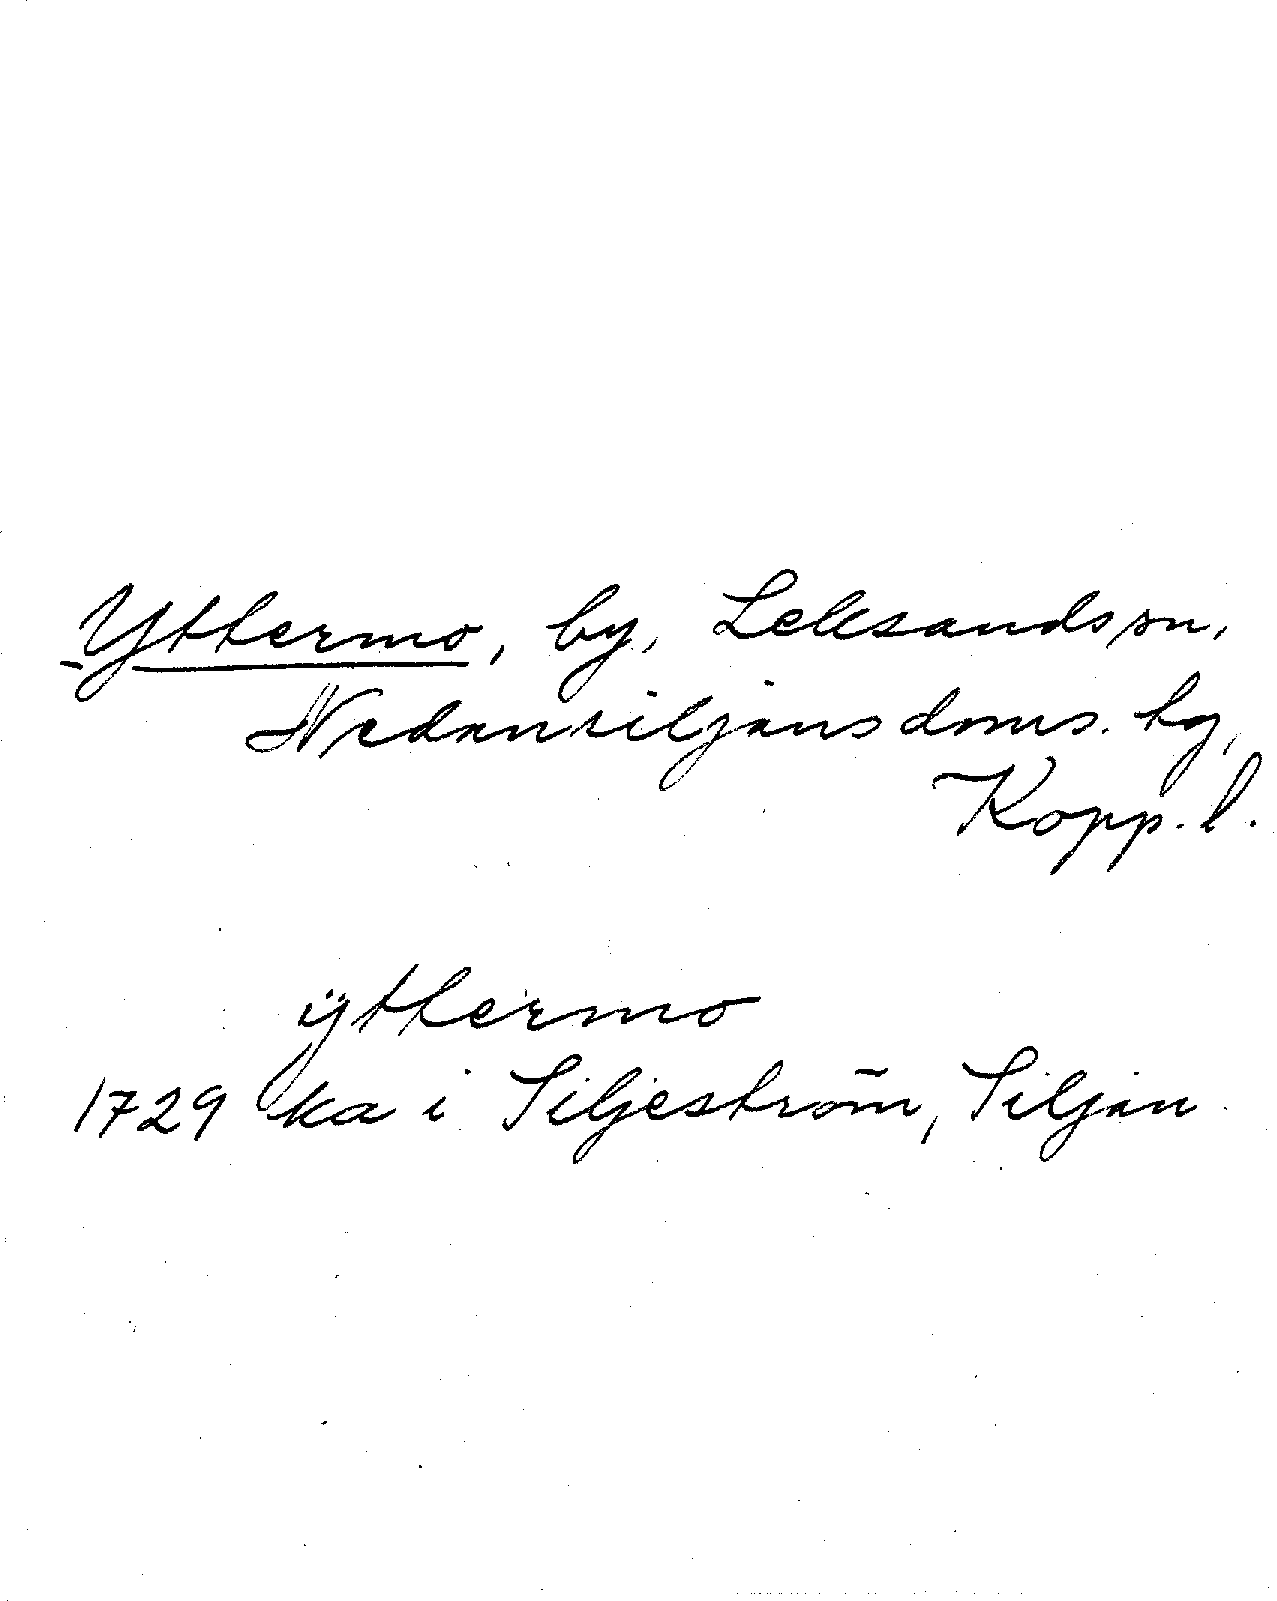 Yttermo, by, Leksands sn,
Nedansiljans doms. hg,
Kopp. l.
ÿttermo
1729 ka i Siljeström, Siljan